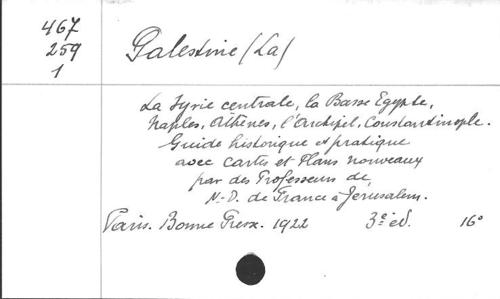 467
259
1
Palestine (La)
La Syrie centrale, la Basse Egypte,
Naples, Athènes, l'Archipel, Constantinople.
Guide historique et pratique
avec Cartes et Plans nouveaux
par des Professeurs de
N.-D. de France à Jérusalem.
Paris. Bonne Presse. 1922 3e éd. 16°